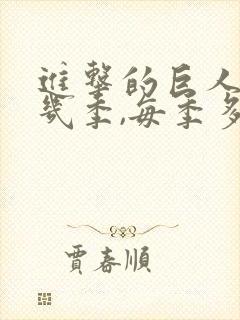 進撃的巨人
幾季,每季多
賈春順